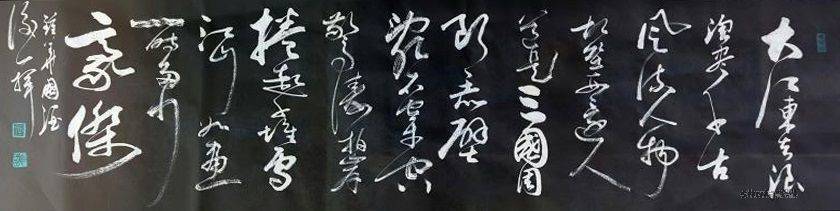 大江東去浪
淘盡千古
風流人物
故壘西邊人
道是三國周
郎赤壁
亂石穿空
驚濤拍岸
捲起千堆雪
江山如畫
一時多少
豪傑
國酒
後一揮